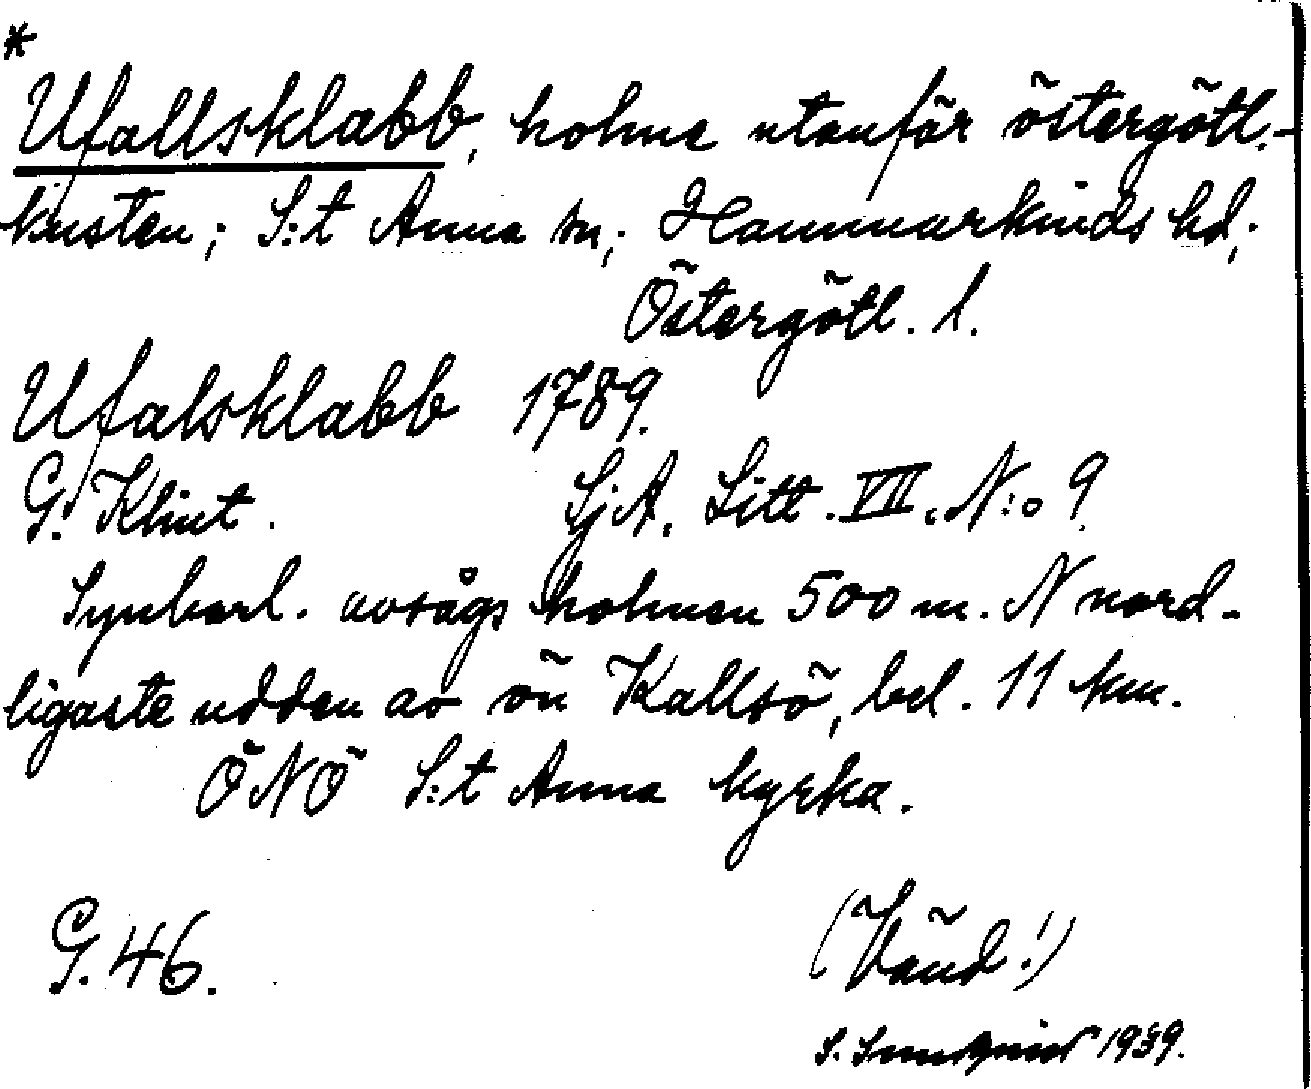 *
Ufallsklabb, holme utanför östergötl.-
kusten; S:t Anna sn; Hammarkinds hd;
Östergötl. l.
Ufalsklabb 1789.
G. Klint. SjA. Litt. VII. N:o 9
Synbarl. avsågs holmen 500 m. N nord-
ligaste udden av ön Kallsö, bel. 11 km.
ÖNÖ S:t Anna kyrka.
G. 46. (Vänd!)
S. 1939.